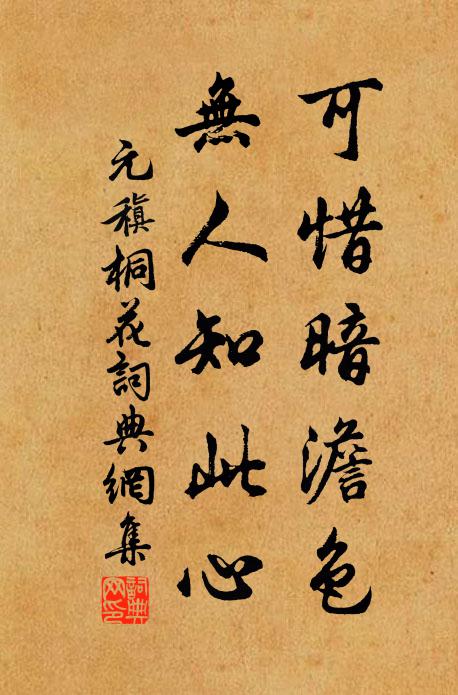 可惜暗澹色
無人知此心
元稹桐花詞典網集
詞典網印